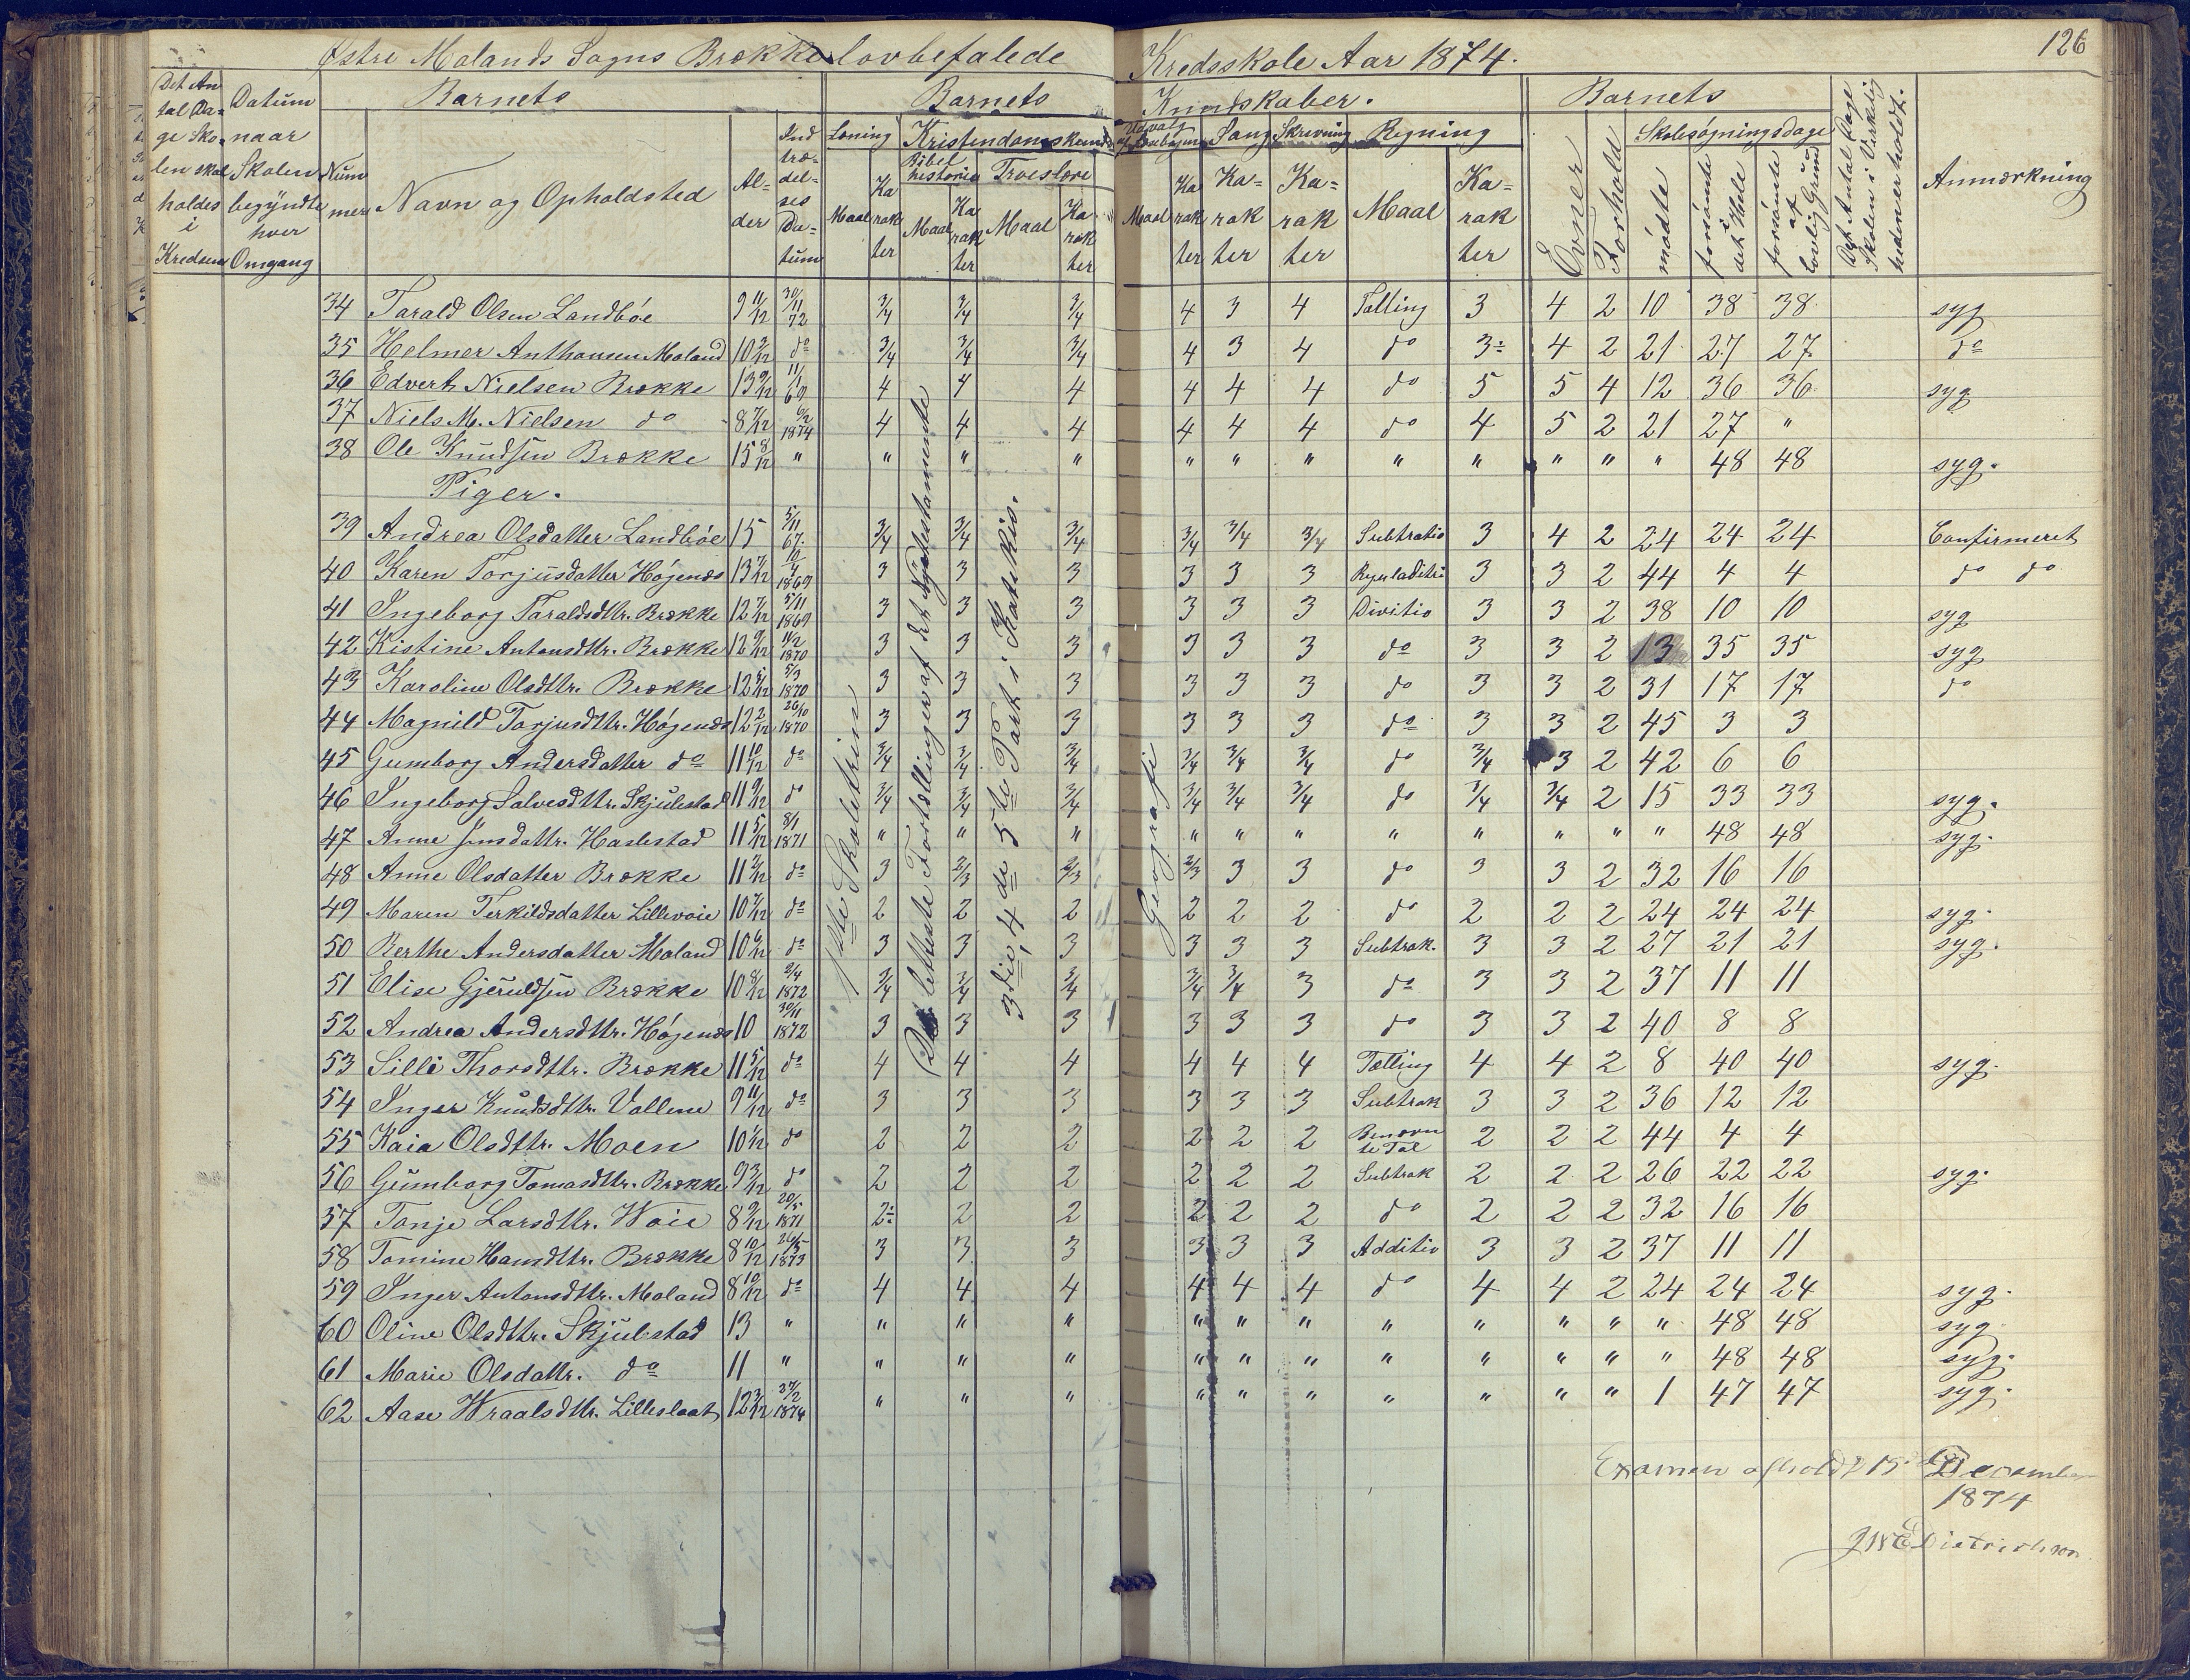 126
Østre Molands Sogns Brække lovbefalede Kredsskole Aar 1874.
Det Antal Dage Skolen skal holdes i Kredsen
Datum naar Skolen begyndte hver Omgang
Barnets
Nummer
Navn og Opholdsted
Alder
Indtrædelses Datum
Barnets Kundskaber.
Læsning
Maal Karakter
Kristendomskundsk
Bibelhistorie
Maal Karakter
Troeslære
Maal Karakter
Udvalg af Læsebogen
Maal Karakter
Sang
Karakter
Skrivning
Karakter
Regning
Maal Karakter
Barnets
Evner
Forhold
Skolesøgningsdage
mødte
forsømte i det Hele
forsømte af lovlig Grund
Det Antal Dage Skolen i Virkeligheden er holdt.
Anmærkning
34 Tarald Olsen Landbøe 9 11/12 30/11 72 3/4 3/4 3/4 4 3 4 Tælling 3 4 2 10 38 38 syg
35 Helmer Anthonsen Moland 10 9/12 do 3/4 3/4 3/4 4 3 4 do 3÷ 4 2 21 27 27 do
36 Edvert Nielsen Brække 13 9/12 11/1 69 4 4 4 4 4 4 do 5 5 4 12 36 36 syg
37 Niels M. Nielsen do 8 7/12 6/2 1874 4 4 4 4 4 4 do 4 5 2 21 27 "
38 Ole Knudsen Brække 15 8/12 " " " " " " " " " " " " 48 48 syg.
Piger.
39 Andrea Olsdatter Landbøe 15 5/11 67 3/4 3/4 3/4 3/4 3/4 3/4 Subtratio 3 4 2 24 24 24 Confirmeret
40 Karen Torjusdatter Høgenæs 13 7/12 1869 3 3 3 3 3 3 3 3 2 44 4 4 do do
41 Ingeborg Taraldsdttr. Brække 12 7/12 5/11 1869 3 3 3 3 3 3 Divitio 3 3 2 38 10 10 syg
42 Kistine Antonsdttr. Brække 12 9/12 11/2 1870 3 3 3 3 3 3 do 3 3 2 13 35 35 syg
43 Karoline Olsdttr. Brække 12 5/12 5/3 1870 3 3 3 3 3 3 do 3 3 2 31 17 17 do
44 Magnild Torjusdttr. Høgenæs 12 2/12 26/10 1870 3 3 3 3 3 3 do 3 3 2 45 3 3
45 Gumborg Andersdatter do 11 10/12 do 3/4 3/4 3/4 3/4 3/4 3/4 do 3/4 3 2 42 6 6
46 Ingeborg Salvesdttr. Skjulestad 11 9/12 do 3/4 3/4 3/4 3/4 3/4 3/4 do 3/4 3/4 2 15 33 33 syg.
47 Anne Jensdattr. Haslestad 11 5/12 8/1 1871 " " " " " " " " " " " 48 48 syg.
48 Anne Olsdatter Brække 11 2/12 do 3 2/3 2/3 2/3 3 3 do 3 3 2 32 16 16
49 Maren Terkildsdatter Lillevoie 10 7/12 do 2 2 2 2 2 2 do 2 2 2 24 24 24 syg.
50 Berthe Andersdatter Moland 10 6/12 do 3 3 3 3 3 3 Subtrak. 3 3 2 27 21 21 syg.
51 Elise Gjeruldsen Brække 10 8/12 2/4 1872 3/4 3/4 3/4 3/4 3/4 3 do 3 3 2 37 11 11
52 Andrea Andersdttr. Høgenæs 10 30/11 1872 3 3 3 3 3 3 do 3 3 2 40 8 8
53 Silli Thorsdttr. Brække 11 5/12 do 4 4 4 4 4 4 Tælling 4 4 2 8 40 40 syg.
54 Inger Knudsdttr. Vallene 9 11/12 do 3 3 3 3 3 3 Subtrak 3 3 2 36 12 12
55 Kaia Olsdttr. Moen 10 1/12 do 2 2 2 2 2 2 Benævnte Tal 2 2 2 44 4 4
56 Gumborg Tomasdttr. Brække 9 3/12 do 2 2 2 2 2 2 Subtrak 2 2 2 26 22 22 syg.
57 Tonje Larsdttr. Woie 8 9/12 20/5 1871 2÷ 2 2 2 2 2 do 2 2 2 32 16 16
58 Tomine Hansdttr. Brække 8 10/12 26/5 1873 3 3 3 3 3 3 Additio 3 3 2 37 11 11
59 Inger Antonsdttr. Moland 8 10/12 do 4 4 4 4 4 4 do 4 4 2 24 24 24 syg.
60 Oline Olsdttr. Skjulestad 13 " " " " " " " " " " " " 48 48 syg
61 Marie Olsdattr. do 11 " " " " " " " " " " " " 48 48 syg.
62 Aase Wraalsdttr. Lilleslaat 12 3/12 27/2 1874 " " " " " " " " " " 1 47 47 syg.
1ste Skoletrin
De letteste Fortællinger af det Nyetestamente
3die, 4de 5te Part i Katekis.
Geografi
Examen afholdt 15 December
1874
Dietrichson